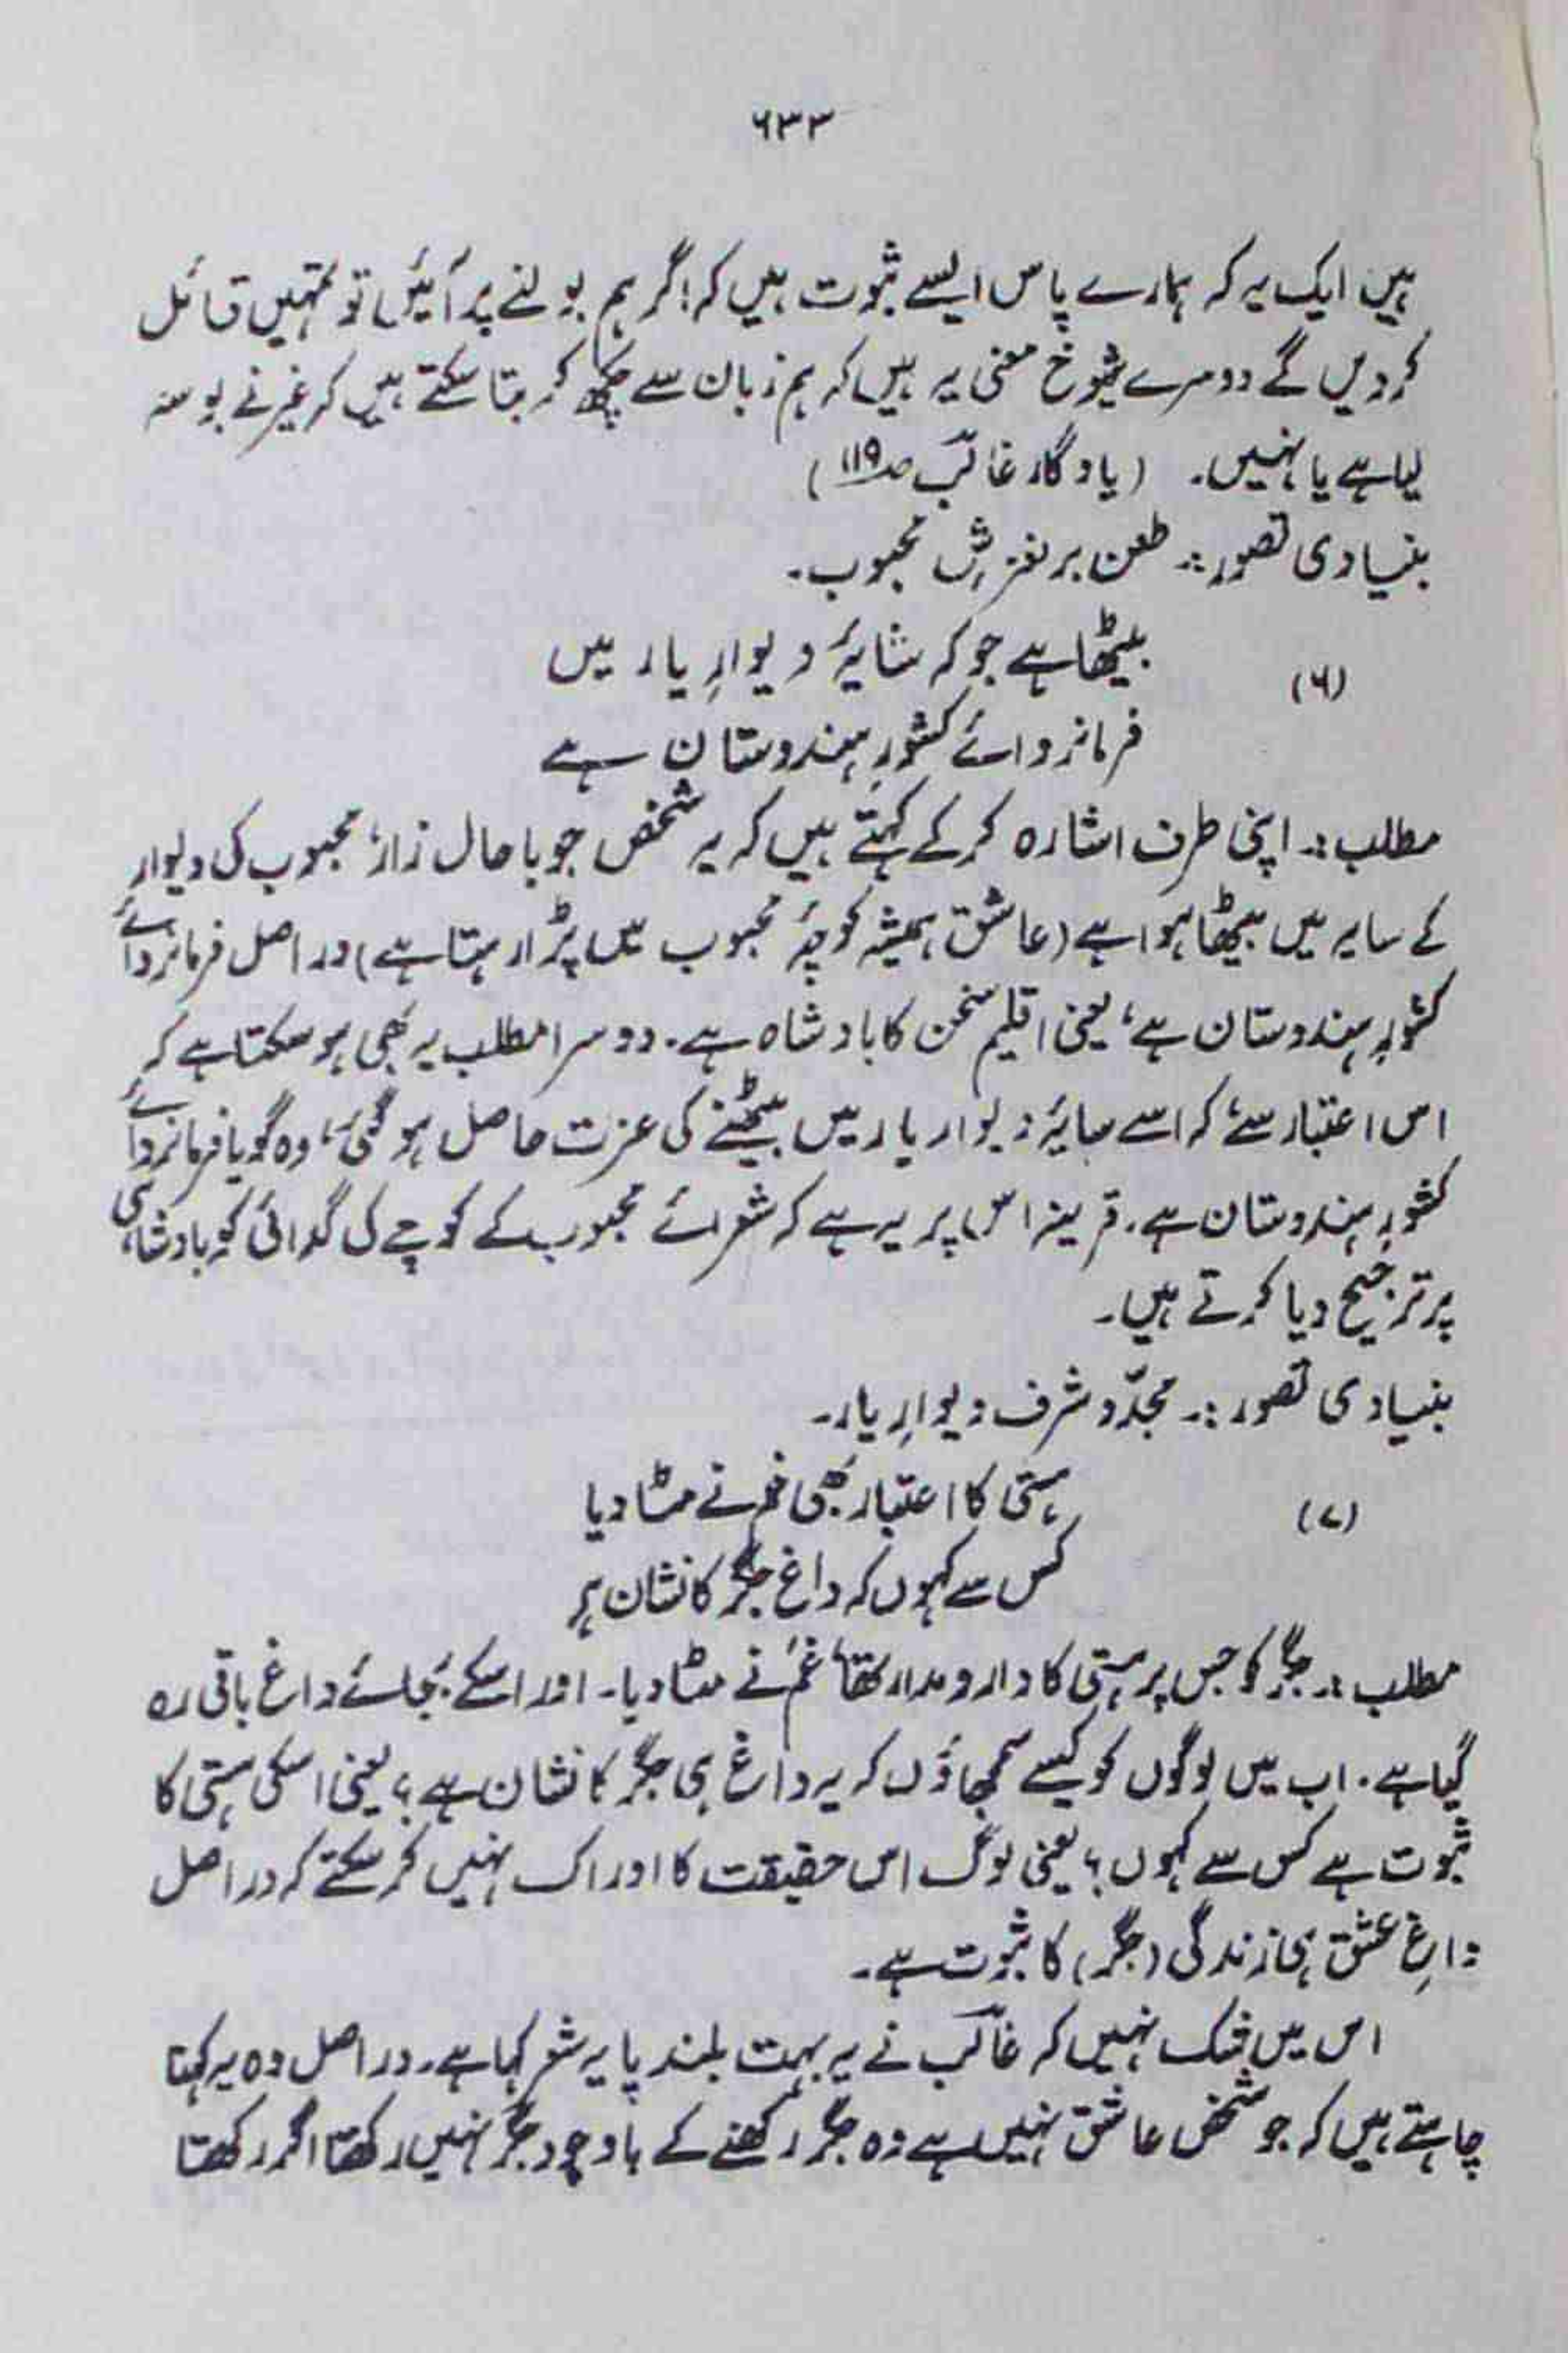 ۶۳۳
ہیں ایک یہ کہ ہمارے پاس ایسے ثبوت ہیں کہ اگر ہم بولنے پر آئیں تو تمہیں قائل
کردیں گے دوسرے شوخ معنی یہ ہیں کہ ہم زبان سے چکھ کر بتا سکتے ہیں کہ غیر نے بوسہ
لیا ہے یا نہیں۔ (یادگار غالب صـ۱۱۹)
بنیادی تصور :۔ طعن بر لغزش محبوب۔
(۶) بیٹھا ہے جو کہ سایۂ دیوارِ یار میں
فرمانروائے کشورِ ہندوستان ہے
مطلب :۔ اپنی طرف اشارہ کر کے کہتے ہیں کہ یہ شخص جو با حال زار، محبوب کی دیوار
کے سایہ میں بیٹھا ہوا ہے (عاشق ہمیشہ کوچۂ محبوب میں پڑا رہتا ہے) در اصل فرمانروائے
کشورِ ہندوستان ہے، یعنی اقلیم سخن کا بادشاہ ہے۔ دوسرا مطلب یہ بھی ہو سکتا ہے کہ
اس اعتبار سے، کہ اسے سایۂ دیوار یار میں بیٹھنے کی عزت حاصل ہو گئی، وہ گویا فرمانروائے
کشورِ ہندوستان ہے۔ قرینہ اس پر یہ ہے کہ شعرائے محبوب کے کوچے کی گدائی کو بادشاہی
پر ترجیح دیا کرتے ہیں۔
بنیادی تصور :۔ مجدّو شرف دیوارِ یار۔
(۷) ہستی کا اعتبار بھی غم نے مٹا دیا
کس سے کہوں کہ داغ جگر کا نشان ہے
مطلب :۔ جگر کو جس پر ہستی کا دارومدار تھا، غم نے مٹا دیا۔ اور اسکے بجائے داغ باقی رہ
گیا ہے۔ اب میں لوگوں کو کیسے سمجھاؤں کہ یہ داغ ہی جگر کا نشان ہے؟ یعنی اسکی ہستی کا
ثبوت ہے کس سے کہوں؟ یعنی لوگ اس حقیقت کا ادراک نہیں کر سکتے کہ در اصل
داغِ عشق ہی زندگی (جگر) کا ثبوت ہے۔
اس میں شک نہیں کہ غالب نے یہ بہت بلند پایہ شعر کہا ہے۔ در اصل وہ یہ کہنا
چاہتے ہیں کہ جو شخص عاشق نہیں ہے وہ جگر رکھنے کے باوجود جگر نہیں رکھتا اگر رکھتا